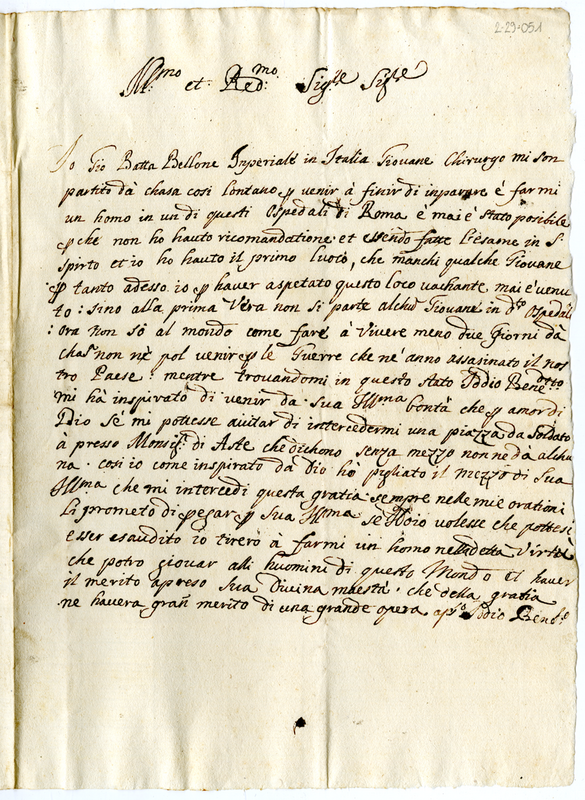 2-29-051
Ill:mo et Red:mo Sig:re Sig:re
Io Gio Batta Bellone Inperiale in Italia Giovane Chirurgo mi son
partito dà chasa cosi lontano p venir à finir di inparare è farmi
un homo in un di questi Ospedali di Roma è mai è stato posibile
p che non ho hauto ricomandatione et essendo fatte l'esame in S:
Spirto et io ho hauto il primo luoco, che manchi qualche Giovane
p tanto adesso io p haver aspetato questo loco vachante, mai è venu
to: sino alla prima Vera non si parte alchū Giovane in d:o Ospedali
: Ora non sò al mondo come farè à vivere meno due Giorni dà
chasa non ne pol venir p le Guerre che ne anno assasinato il nos
tro Paese: mentre trovandomi in questo stato Iddio Bene:detto
mi hà inspirato di venir da sua Ill:ma bontà che p amor di
Dio sé mi potesse auitar di intercedermi una piazza da Soldato
à presso Monsig: di Aste che dichono senza mezzo non ne dà alchu
na. cosi io come inspirato dà Dio hò pigliato il mezzo di Sua
Ill:ma che mi intercedi questa gratia sempre nelle mie orationi
li prometo di pegar p Sua Ill:ma sé Iddio volesse che potessi
esser esaudito io tirerò à farmi un homo nella detta Virtù
che potro giovar alli huomini di questo Mondo et haver
il merito apreso Sua Divina maestà. che della gratia
ne havera gran merito di una grande opera ap:o Iddio Bened:o